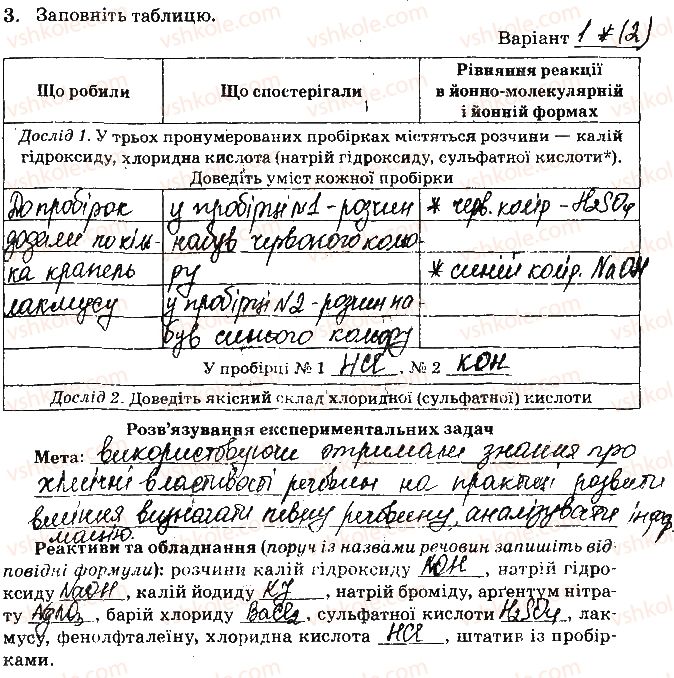 3. Заповніть таблицю.
Варіант 1 * (2)
Що робили
Що спостерігали
Рівняння реакції
в йонно-молекулярній
і йонній формах
Дослід 1. У трьох пронумерованих пробірках містяться розчини — калій
гідроксиду, хлоридна кислота (натрій гідроксиду, сульфатної кислоти*).
Доведіть уміст кожної пробірки
До пробірок
додали по кіль
ка крапель
лакмусу
у пробірці №1 - розчин
набув червоного коль
ру
у пробірці №2 - розчин на
був синього кольору
* черв. колір - H₂SO₄
* синій колір. NaOH
У пробірці № 1 HCl, № 2 KOH
Дослід 2. Доведіть якісний склад хлоридної (сульфатної) кислоти
Розв'язування експериментальних задач
Мета: використовуючи отримали знання про
хімічні властивості речовин на практиці розвити
вміння визначати певну речовину, аналізувати інфор
мацію.
Реактиви та обладнання (поруч із назвами речовин запишіть від
повідні формули): розчини калій гідроксиду KOH, натрій гідро-
ксиду NaOH, калій йодиду KJ, натрій броміду, арґентум нітра-
ту AgNO₃, барій хлориду BaCl₂, сульфатної кислоти H₂SO₄, лак-
мусу, фенолфталеїну, хлоридна кислота HCl, штатив із пробір-
ками.